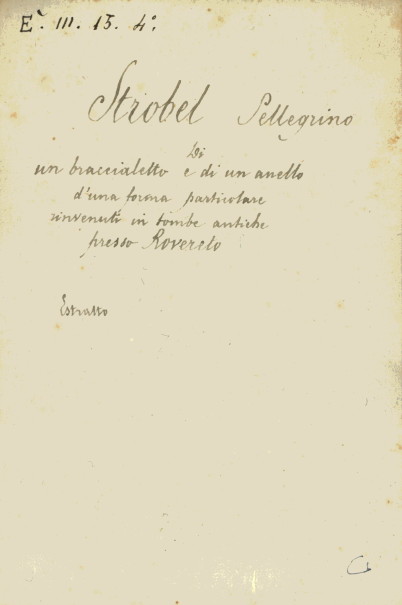 E. III. 15. 4°.
Strobel Pellegrino
Di
un braccialetto e di un anello
d'una forma particolare
rinvenuti in tombe antiche
presso Rovereto
Estratto